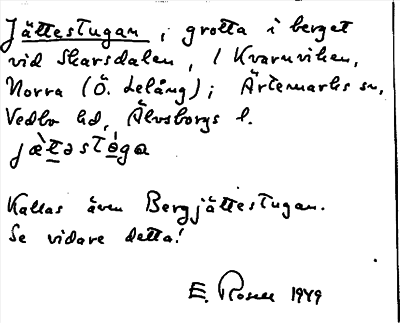 Jättestugan, grotta i berget
vid Skarsdalen, i Kvarnviken,
Norra (Ö. Lelång); Ärtemarks sn,
Vedbo hd, Älvsborgs l.
jæ̀təstɷ́ga
Kallas även Bergjättestugan.
Se vidare detta!
E. Rosell 1949